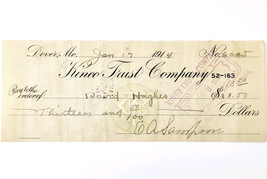 Dover, Me. Jan 17 1914 No.
Kineo Trust Company 52-163
Pay to the order of David Hughes $13.00
Thirteen and /100 Dollars
E A Sampson